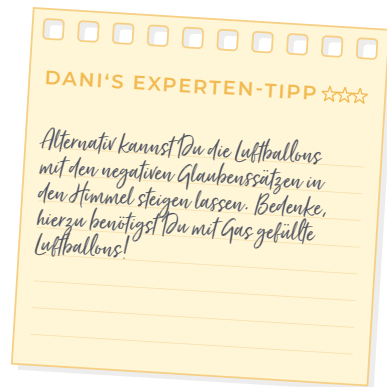 DANI‘S EXPERTEN-TIPP
Alternativ kannst Du die Luftballons
mit den negativen Glaubenssätzen in
den Himmel steigen lassen. Bedenke,
hierzu benötigst Du mit Gas gefüllte
Luftballons!